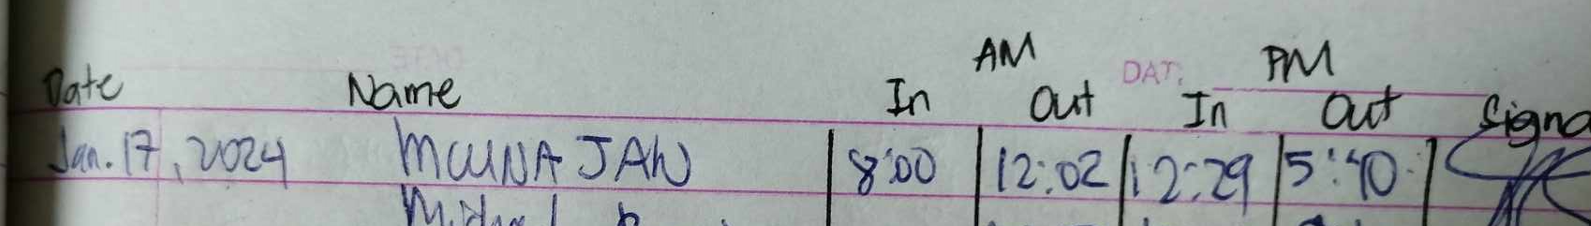 AM DAT. PM
Date Name In Out In Out Signa
Jan. 17, 2024 JAN 8:00 12:02 12:29 5:40